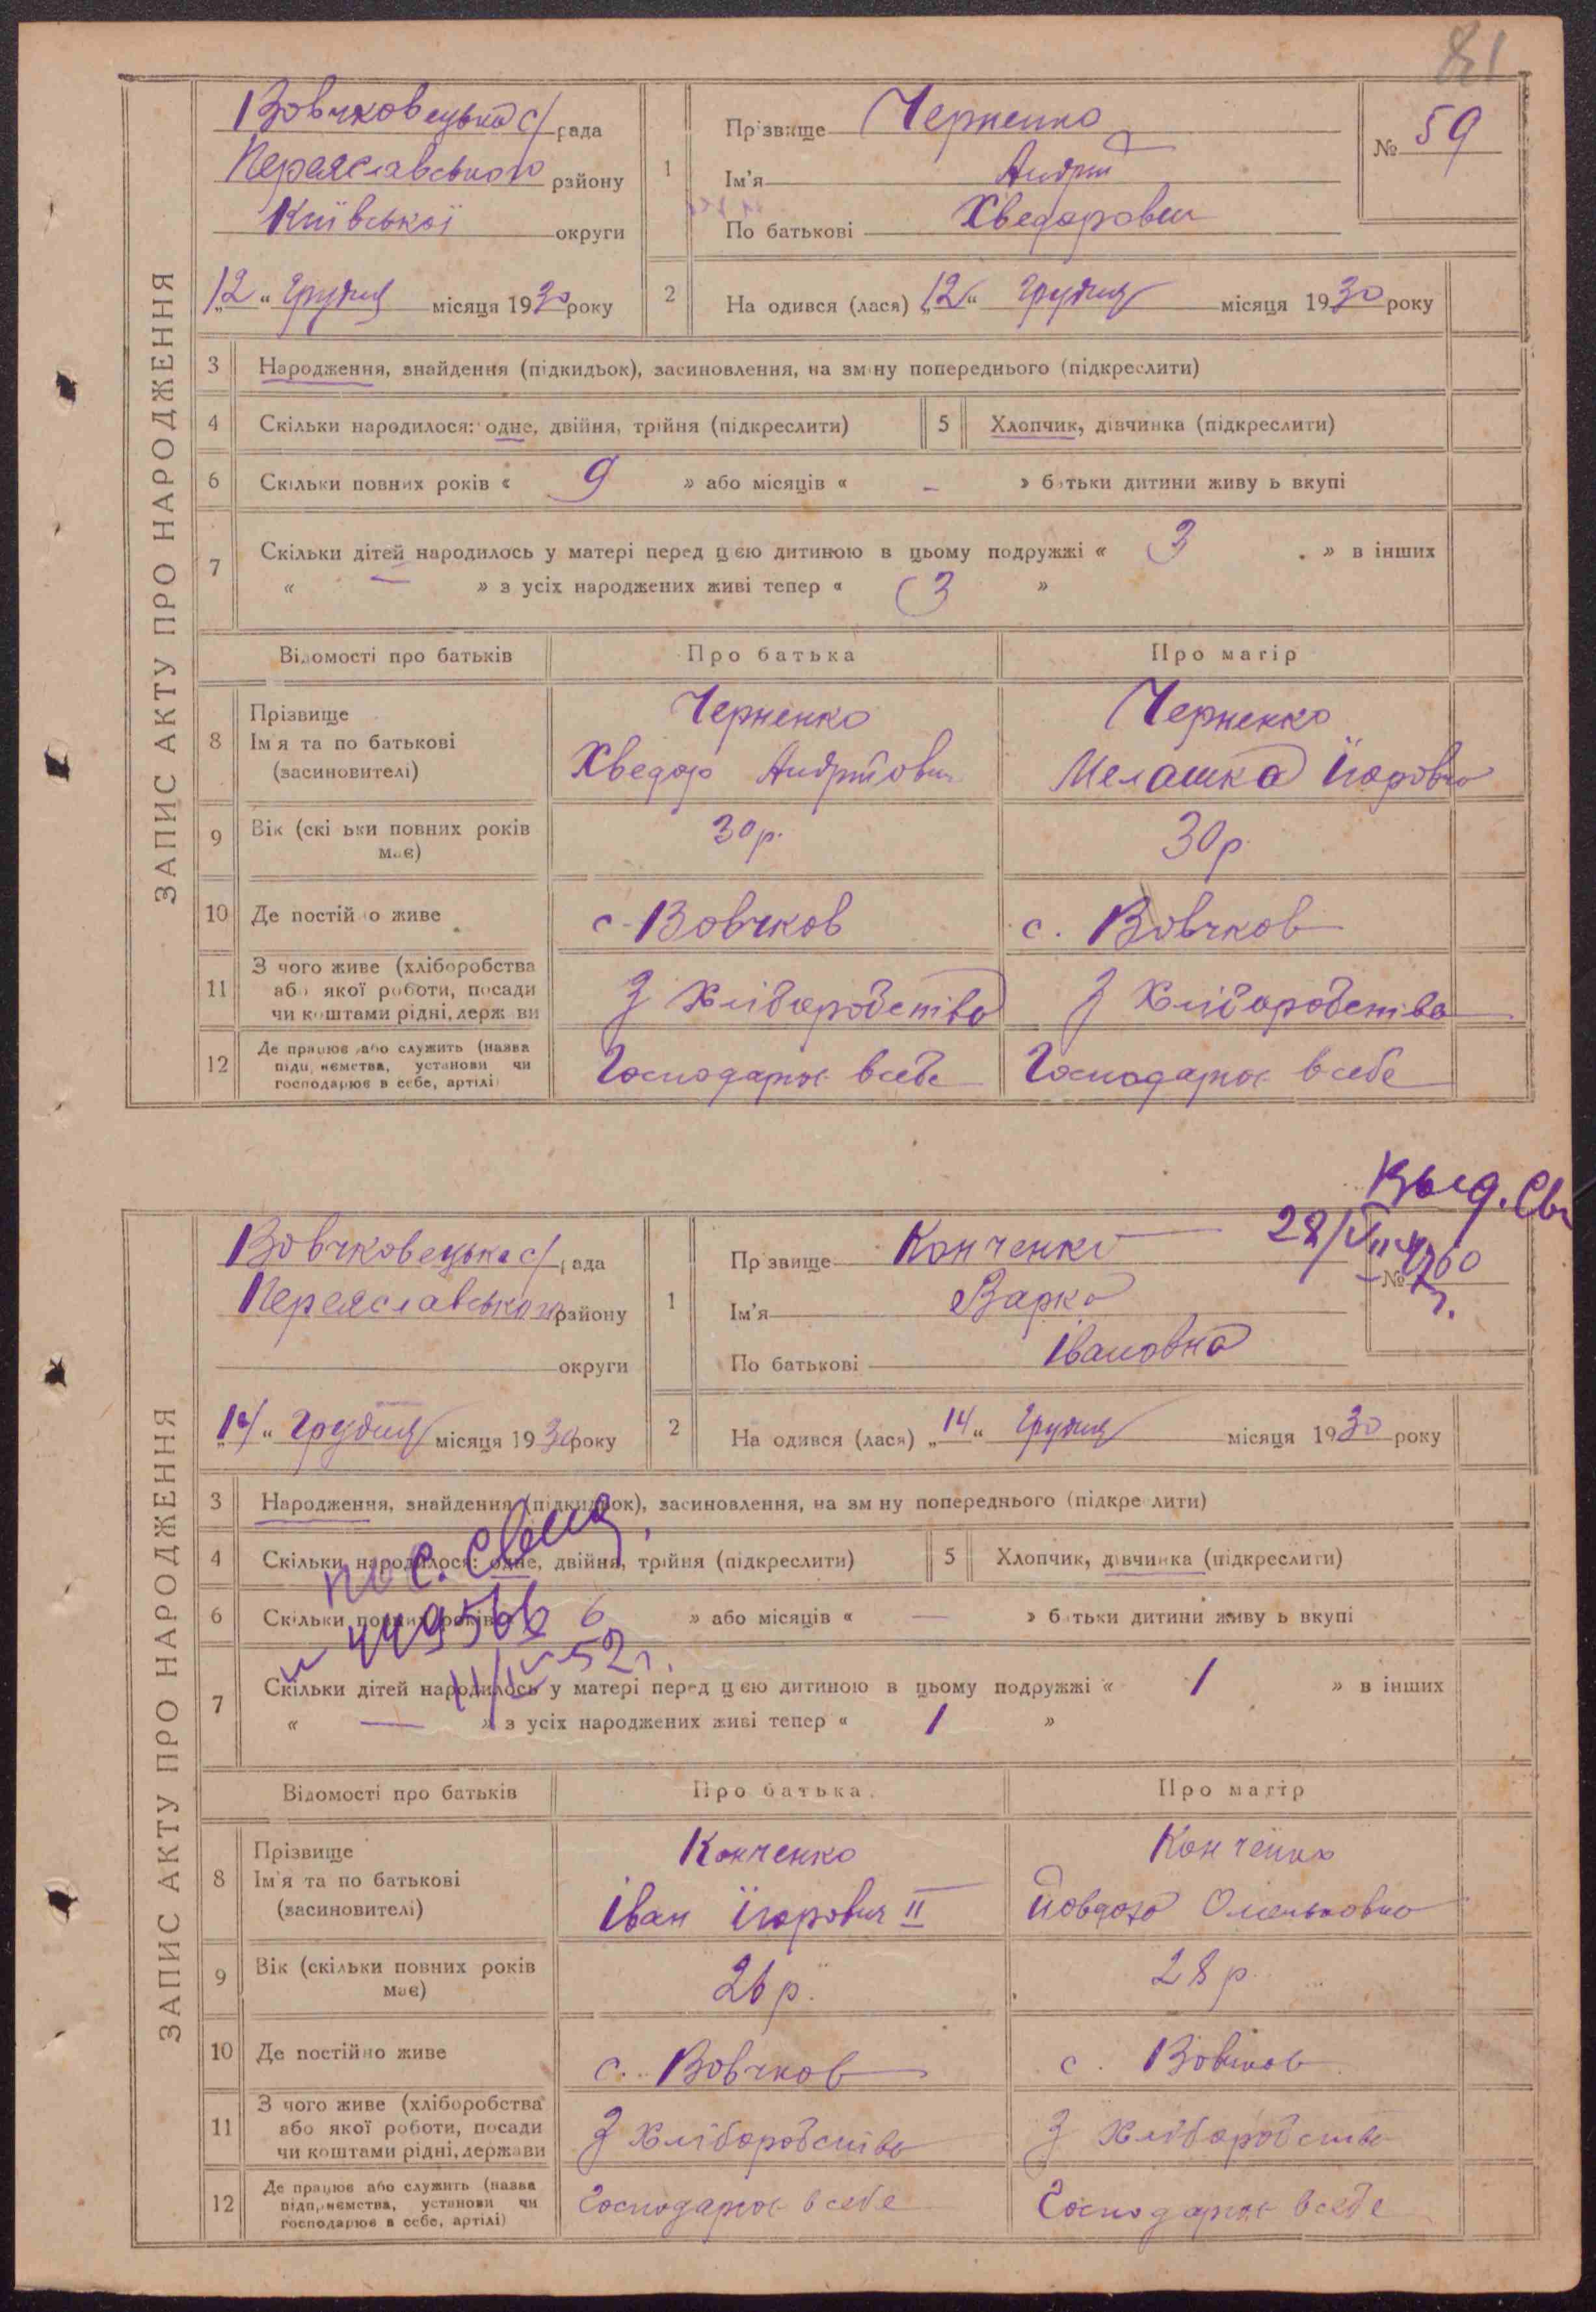 81
ЗАПИС АКТУ ПРО НАРОДЖЕННЯ
Вовчковецька с/рада
Переяславського району
Київської округи
„12“ Грудня місяця 1930 року
1
Прізвище Черненко
Ім'я Андрій
По батькові Хведорович
№ 59
2
На одився (лася) „12“ Грудня місяця 1930 року
3 Народження, знайдення (підкидьок), засиновлення, на зміну попереднього (підкреслити)
4 Скільки народилося: одне, двійня, трійня (підкреслити) 5 Хлопчик, дівчинка (підкреслити)
6 Скільки повних років « 9 » або місяців « - » батьки дитини живу ь вкупі
7 Скільки дітей народилось у матері перед цією дитиною в цьому подружжі « 3 » в інших
« — » з усіх народжених живі тепер « 3 »
Відомості про батьків Про батька Про матір
8 Прізвище
Ім'я та по батькові
(засиновителі)
Черненко
Хведор Андрійович
Черненко
Мелашка Їгоровна
9 Вік (скільки повних років
має)
30 р.
30 р.
10 Де постійно живе с. Вовчков с. Вовчков
11 З чого живе (хліборобства
або якої роботи, посади
чи коштами рідні, держави
З Хліборобства З Хліборобства
12 Де працює або служить (назва
підприємства, установи чи
господарює в себе, артілі)
Господарює в себе Господарює в себе
Выд. Св
28/VII
ЗАПИС АКТУ ПРО НАРОДЖЕННЯ
Вовчковецька с/рада
Переяславського району
округи
„14“ Грудня місяця 1930 року
1
Прізвище Конченко
Ім'я Варка
По батькові Івановна
№ 60
2
На одився (лася) „14“ Грудня місяця 1930 року
3 Народження, знайдення (підкидьок), засиновлення, на зміну попереднього (підкреслити)
4 Скільки народилося: одне, двійня, трійня (підкреслити) 5 Хлопчик, дівчинка (підкреслити)
6 Скільки повних років « 6 » або місяців « — » батьки дитини живу ь вкупі
7 Скільки дітей народилось у матері перед цією дитиною в цьому подружжі « 1 » в інших
« — » з усіх народжених живі тепер « 1 »
Відомості про батьків Про батька Про матір
8 Прізвище
Ім'я та по батькові
(засиновителі)
Конченко
Іван Їгорович II
Конченко
Йовдоха
9 Вік (скільки повних років
має)
26 р.
28 р.
10 Де постійно живе с. Вовчков с. Вовчков
11 З чого живе (хліборобства
або якої роботи, посади
чи коштами рідні, держави
З Хліборобства З Хліборобства
12 Де працює або служить (назва
підприємства, установи чи
господарює в себе, артілі)
Господарює в себе Господарює в себе